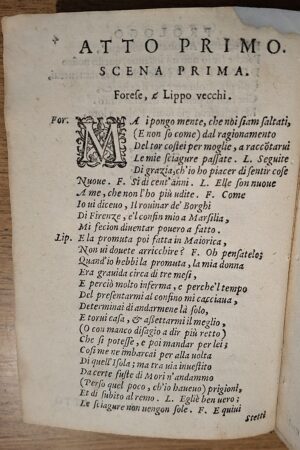 ATTO PRIMO.
SCENA PRIMA.
Forese, e Lippo vecchi.
For. MA i pongo mente, che nòi siam saltati,
(E non so come) dal ragionamento
Del tor costei per moglie, a raccōtarui
Le mie sciagure passate. L. Seguite
Di grazia, ch'io ho piacer di sentir cose
Nuoue. F. Si di cent'anni. L. Elle son nuoue
A me, che non l'ho più udite. F. Come
Io ui diceuo, Il rouinar de' Borghi
Di Firenze, e'l confin mio a Marsilia,
Mi fecion diuentar pouero a fatto.
Lip. E la promuta poi fatta in Maiorica,
Non ui douete arricchire? F. Oh pensatelo;
Quand'io hebbi la promuta, la mia donna
Era grauida circa di tre mesi,
E perciò molto inferma, e perche'l tempo
Del presentarmi al confino mi cacciaua,
Determinai di andarmene là solo,
E torui casa, & assettarmi il meglio,
(O con manco disagio a dir più retto)
Che si potesse, e poi mandar per lei;
Cosi me ne imbarcai per alla uolta
Di quell'Isola; ma tra uia inuestito
Da certe fuste di Mori n'andammo
(Perso quel poco, ch'io haueuo) prigioni,
Et di subito al remo. L. Egliè ben uero;
Le sciagure non uengon sole. F. E quiui
stetti